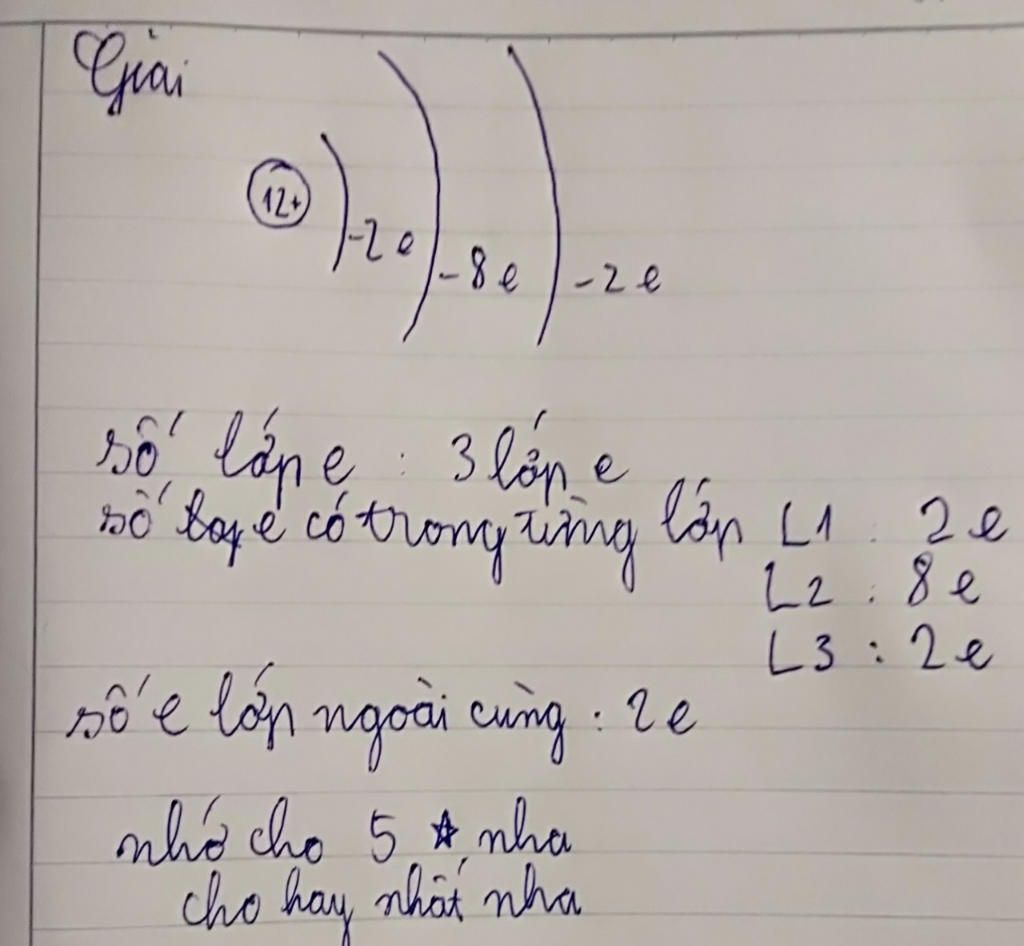 Giải
12+
-2e
-8e
-2e
số lớp e : 3 lớp e
số e có trong từng lớp L1 : 2e
L2 : 8e
L3 : 2e
số e lớp ngoài cùng : 2e
nhớ cho 5 ☆ nha
cho hay nhất nha